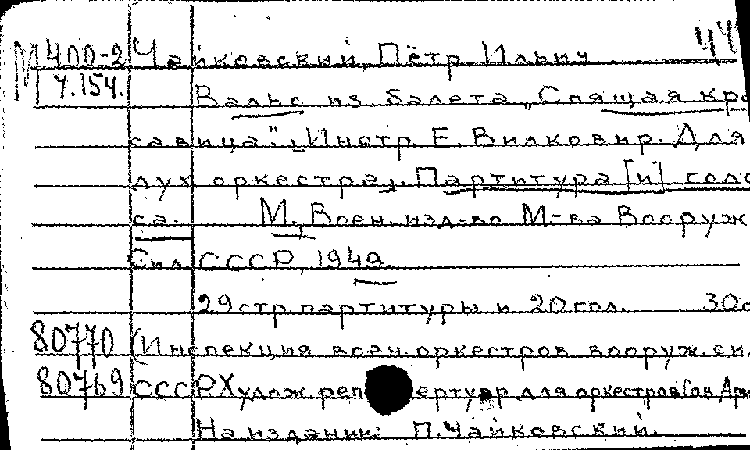 М400-2 Чайковский, Пётр Ильич 44
7.154.
Вальс из балета „Спящая кра
савица". Инстр. Е. Вилковир. Для
дух оркестра. Партитура [и] голо
са. М., Воен. изд-во М-ва Вооруж
Сил СССР, 1949.
29 стр. партитуры и 20 гол. 30с
80770 (Инспекция воен. оркестров вооруж. си.
80769 СССР. Худож. репертуар для оркестров Сов. Арм
На издании: П. Чайковский.